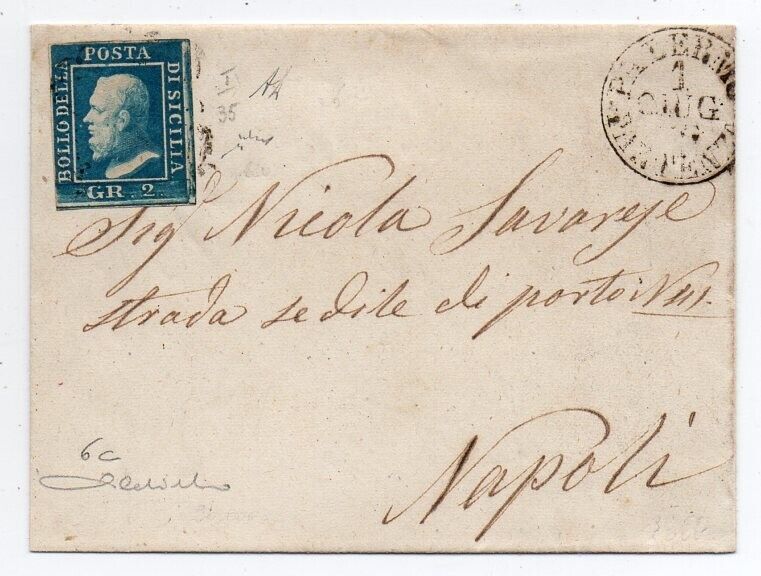 POSTA
BOLLO DELLA
DI SICILIA
GR. 2.
I
35
PALERMO
1
GIUG
Sigr Nicola Savarese
strada sedile di porto
Napoli
6c